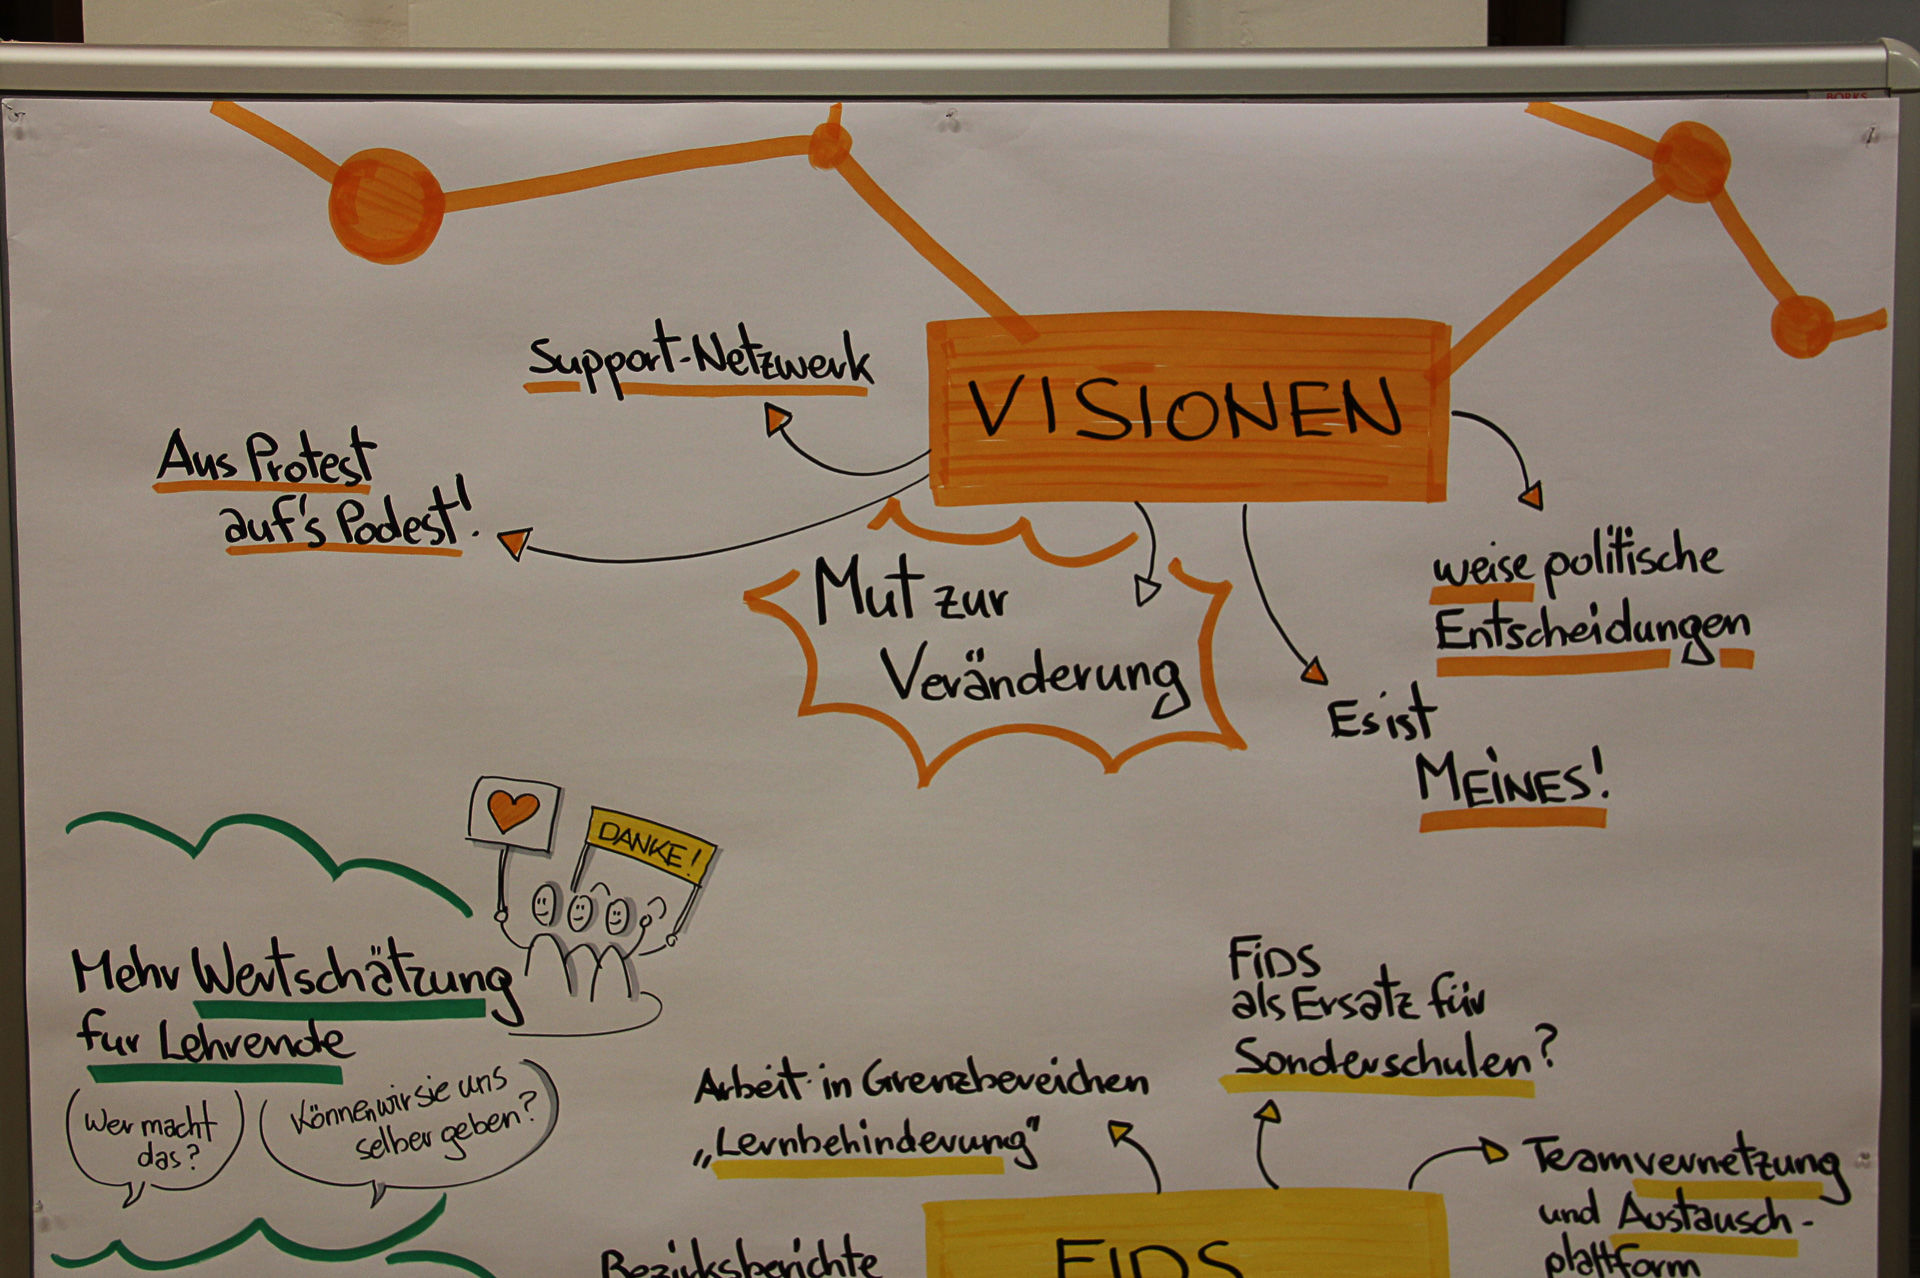 BORKS
VISIONEN
Support-Netzwerk
Aus Protest
auf's Podest!
Mut zur
Veränderung
weise politische
Entscheidungen
Es ist
MEINES!
DANKE!
Mehr Wertschätzung
für Lehrende
Wer macht
das?
Können wir sie uns
selber geben?
FiDS
als Ersatz für
Sonderschulen?
Arbeit in Grenzbereichen
„Lernbehinderung"
Teamvernetzung
und Austausch-
plattform
Bezirksberichte
FIDS